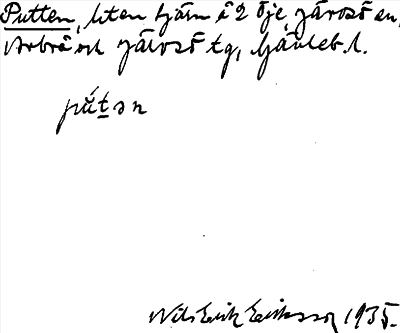 Putten, liten tjärn å 2 Öje, Järvsö sn,
Arbrå och Järvsö tg, Gävleb. l.
pút̠ən
Nils Erik Eriksson 1935.